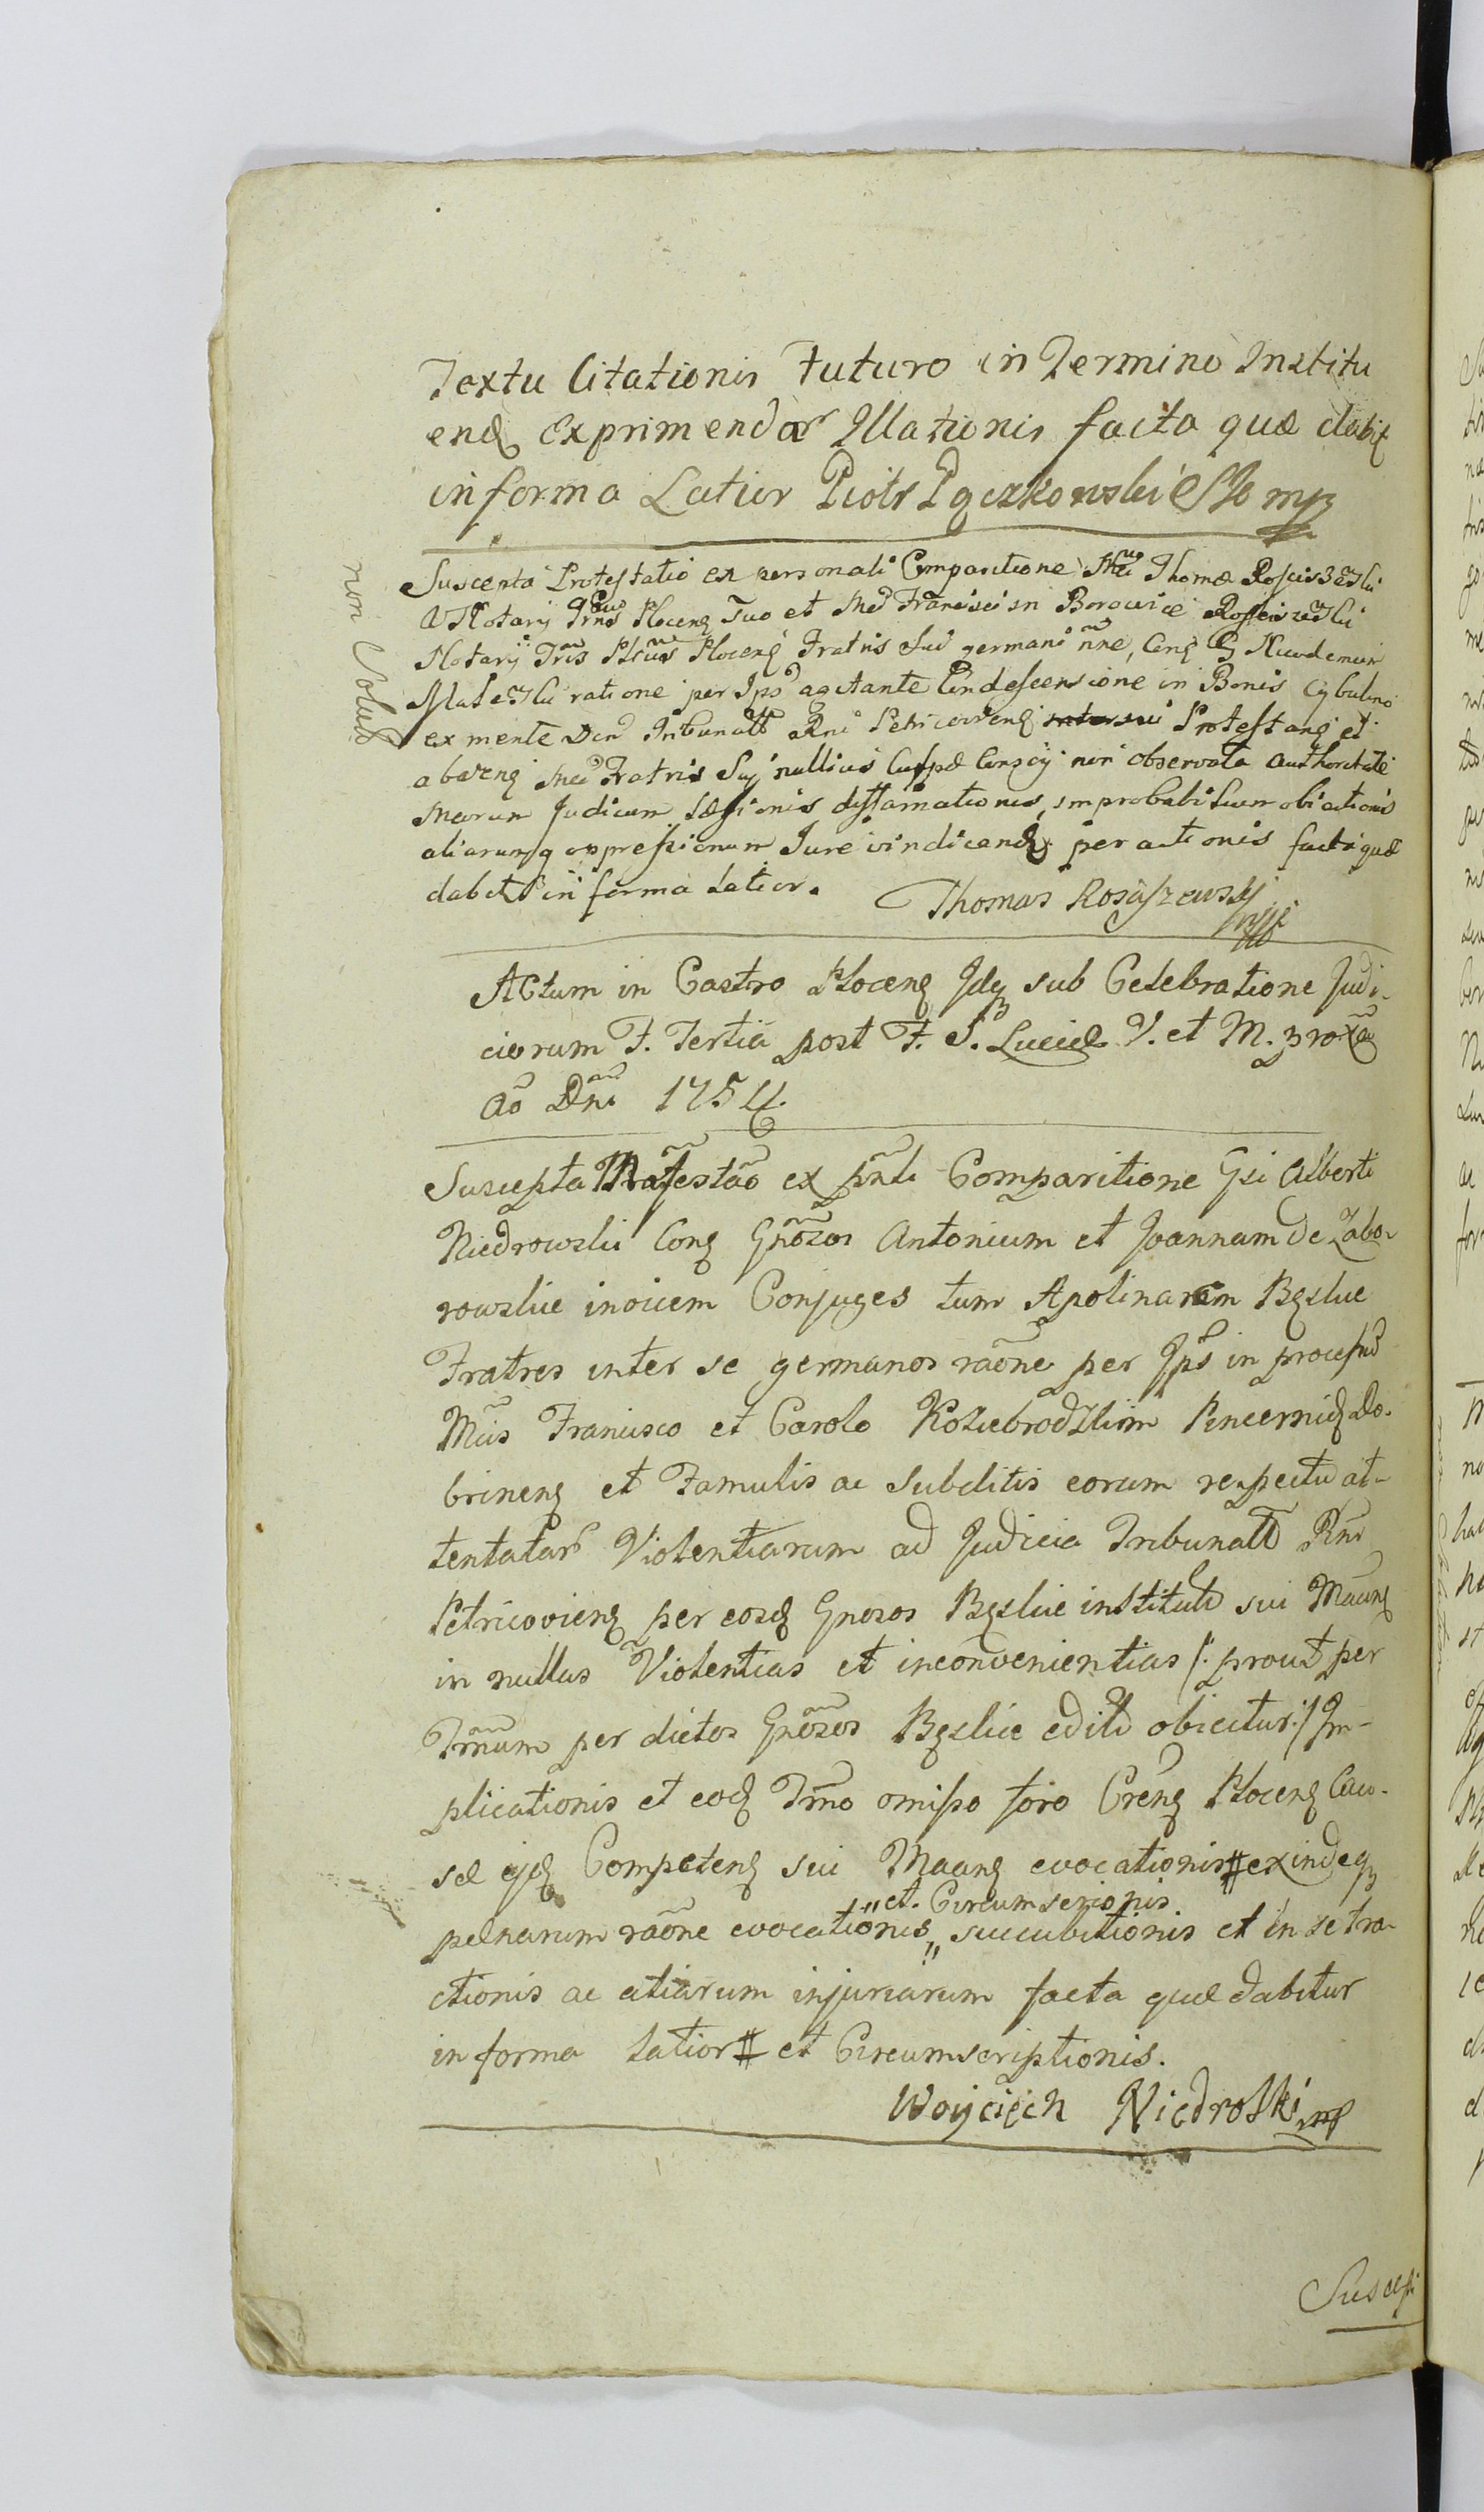 Textu Citationis Futuro in Termino Institu
end Exprimendar Illationis facta quæ dabit
in forma Latior Piotr Pączkowski mp
non Solut
Suscepta Protestatio ex personali Comparitione Mci Thomæ Rosciszewski
Notarij Ploceng Suo et Mci Francisci in Borowice Rosciszewski
Notarij Ploceng Fratris Sui germani nne, Cong Nicodemum
ratione per Ips agitante Condescensione in Bonis Cybulino
ex mente Tribunatt Rni Petricovieng Protestang et
Mci Fratris Sui nullius Culpæ Conscij non observata Authoritate
Mearum Judicum Læsionis diffamationis, improbabilium obiectionis
aliarumq oppressionum Jure vindicand per actionis facta quæ
dabit in forma Latior. Thomas Rosciszewski mp
Actum in Castro Ploceng Idq sub Celebratione Judi-
ciorum F. Tertia post F. S. Luciæ V. et M. proxa
Ao Dni 175
Suscepta Mafestao ex pnli Comparitione Gsi Alberti
Niedrowski Cong Gnosos Antonium et Joannam de Zabo-
rowskie invicem Conjuges tum Apolinarem Bęskie
Fratres inter se germanos raone per Ips in processu
Mcis Francisco et Carolo Koziebrodzkim Pincernid Do-
brineng et Famulis ac Subditis eorum respectu at-
tentatar Violentiarum ad Judicia Tribunatt Rni
Petricovieng per eosd Gnosos Bęskie institut sui Maang
in nullas Violentias et inconvenientias /: prout per
Tmnum per dictos Gnosos Bęskie edit obicitur :/ Im-
plicationis et eod Tmno omisso foro Creng Ploceng Cau-
sæ ejd Competeng sui Maang evocationis # exindeq
pœnarum raone evocationis "et Circumscrionis" succubitionis et in se tra-
ctionis ac aliarum injuriarum facta quæ dabitur
in forma Latior # et Circumscriptionis.
Woyciech Niedroski mp
Suscep